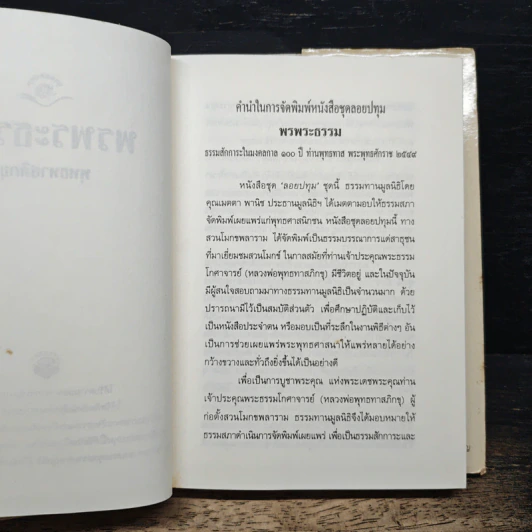 คำนำในการจัดพิมพ์หนังสือชุดลอยปทุม
พรพระธรรม
ธรรมสักการะในมงคลกาล ๑๐๐ ปี ท่านพุทธทาส พระพุทธศักราช ๒๕๔๙
หนังสือชุด 'ลอยปทุม' ชุดนี้ ธรรมทานมูลนิธิโดย
คุณเมตตา พานิช ประธานมูลนิธิฯ ได้เมตตามอบให้ธรรมสภา
จัดพิมพ์เผยแพร่แก่พุทธศาสนิกชน หนังสือชุดลอยปทุมนี้ ทาง
สวนโมกขพลาราม ได้จัดพิมพ์เป็นธรรมบรรณาการแด่สาธุชน
ที่มาเยี่ยมชมสวนโมกข์ ในกาลสมัยที่ท่านเจ้าประคุณพระธรรม
โกศาจารย์ (หลวงพ่อพุทธทาสภิกขุ) มีชีวิตอยู่ และในปัจจุบัน
มีผู้สนใจสอบถามมาทางธรรมทานมูลนิธิเป็นจำนวนมาก ด้วย
ปรารถนามีไว้เป็นสมบัติส่วนตัว เพื่อศึกษาปฏิบัติและเก็บไว้
เป็นหนังสือประจำตน หรือมอบเป็นที่ระลึกในงานพิธีต่างๆ อัน
เป็นการช่วยเผยแพร่พระพุทธศาสนาให้แพร่หลายได้อย่าง
กว้างขวางและทั่วถึงยิ่งขึ้นได้เป็นอย่างดี
เพื่อเป็นการบูชาพระคุณ แห่งพระเดชพระคุณท่าน
เจ้าประคุณพระธรรมโกศาจารย์ (หลวงพ่อพุทธทาสภิกขุ) ผู้
ก่อตั้งสวนโมกขพลาราม ธรรมทานมูลนิธิจึงได้มอบหมายให้
ธรรมสภาดำเนินการจัดพิมพ์เผยแพร่ เพื่อเป็นธรรมสักการะและ